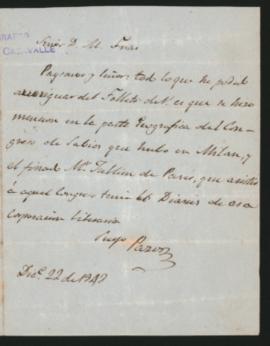 CASAVALLE
Señor D. M. Frias
Paysano y Señor: todo lo que he podido
averiguar del Folleto de V. es que se hizo
mencion en la parte Geografica del Con-
greso de Sabios que hubo en Milan, y
el finado Mr. Jullien de Paris, que asistio
á aquel Congreso tenia los Diarios de esa
Corporacion literaria
Suyo
Pazos
Dic.e 22 de 1849